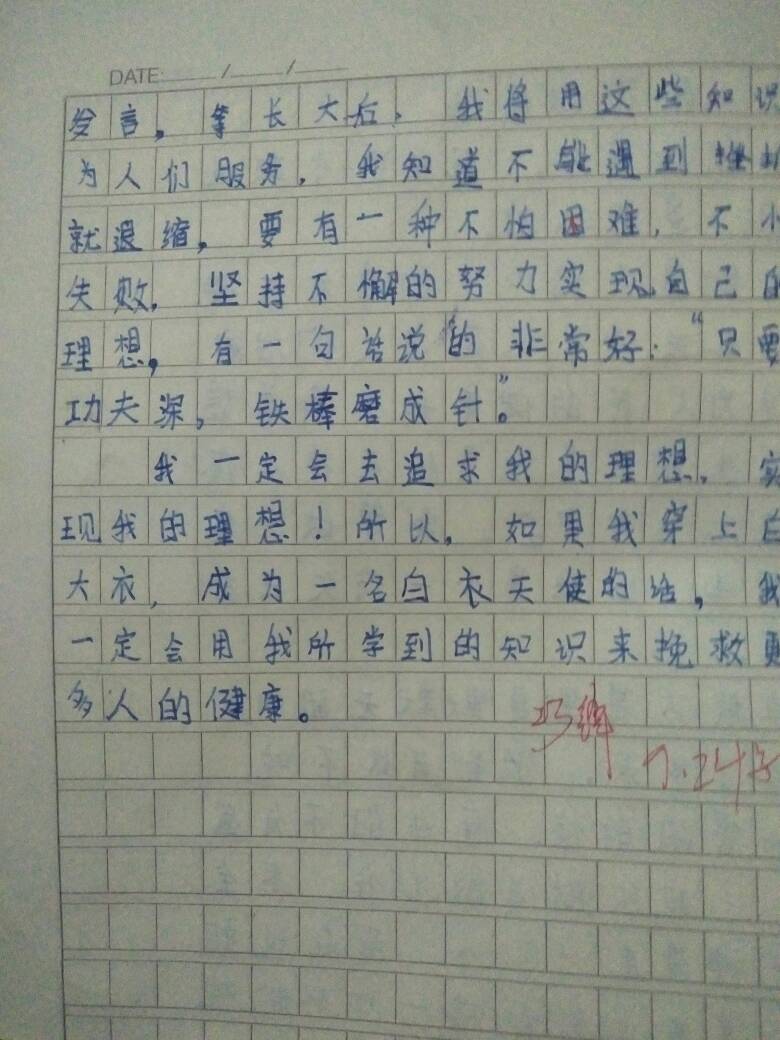 DATE: / /
发言，等长大后，我将用这些知识
为人们服务，我知道不能遇到挫折
就退缩，要有一种不怕困难，不
失败，坚持不懈的努力实现自己的
理想，有一句话说的非常好：“只要
功夫深，铁棒磨成针。”
我一定会去追求我的理想，实
现我的理想！所以，如果我穿上白
大衣，成为一名白衣天使的话，我
一定会用我所学到的知识来挽救
多人的健康。
7.24